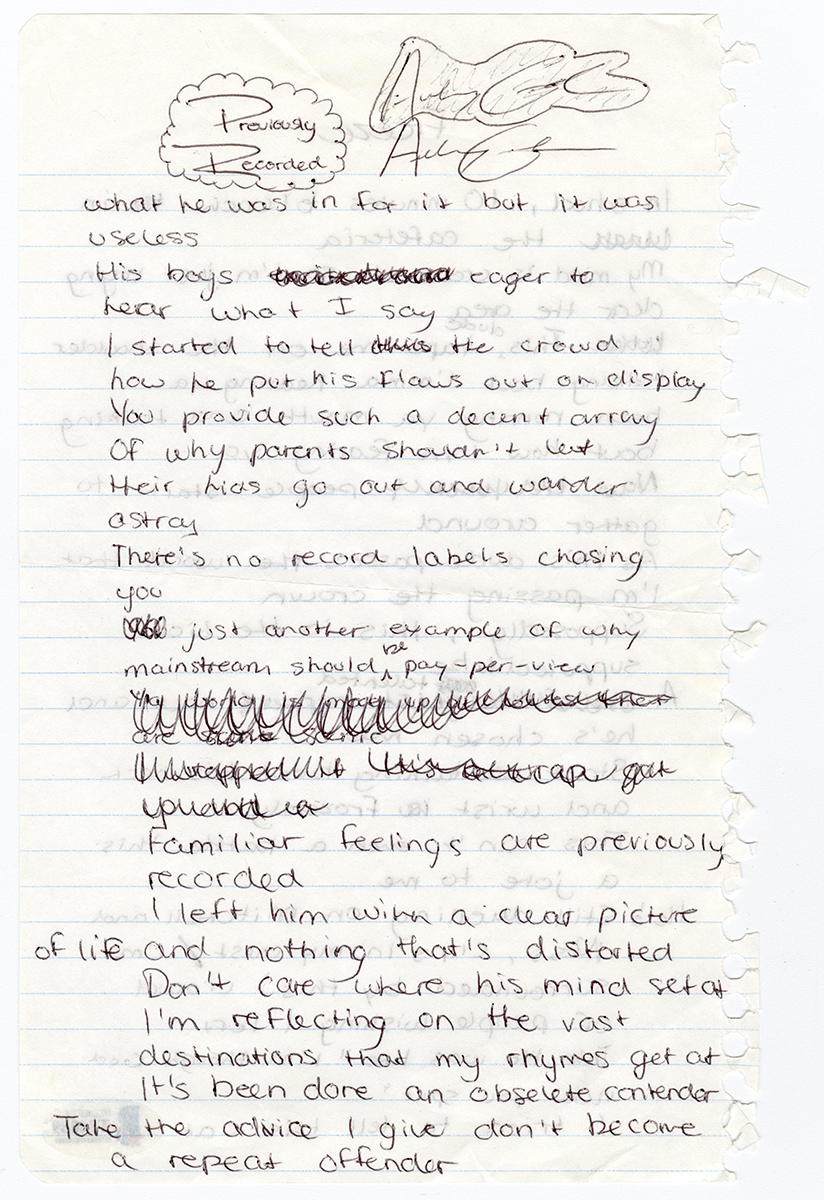 Previously
Recorded
what he was in for it but it was
useless
His boys eager to
hear what I say
I started to tell the crowd
how he put his flaws out on display
You provide such a decent array
Of why parents shouldn't let
their kids go out and wander
astray
There's no record labels chasing
you
just another example of why
mainstream should be pay-per-view
are
rap got
Familiar feelings are previously
recorded
I left him with a clear picture
of life and nothing that's distorted
Don't care where his mind set at
I'm reflecting on the vast
destinations that my rhymes get at
It's been done an obselete contender
Take the advice I give don't become
a repeat offender